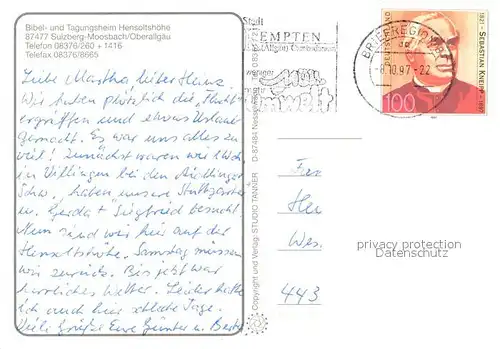 Bibel- und Tagungsheim Hensoltshöhe
87477 Sulzberg-Moosbach/Oberallgäu
Telefon 08376/260 + 1416
Telefax 08376/8665
Liebe Martha, lieber Hans
Wir haben plötzlich die Flucht
ergriffen und etwas Urlaub
gemacht. Es war uns alles zu
viel! Zunächst waren wir 1 Woh
in Villingen bei den Aidlinger
Schw., haben unsere
u. Gerda + Siegfried besucht.
Nun sind wir hier auf der
Hensoltshöhe. Samstag müssen
wir zurück. Bis jetzt war
herrliches Wetter. Leider hatte
ich auch hier Tage.
Viele Grüße Eure Günter u.
Stadt
KEMPTEN
(Allgäu)
Umwelt
BRIEFREGION
-8.10.97-22
DEUTSCHLAND
100
1821 - SEBASTIAN KNEIPP - 1897
Copyright und Verlag: STUDIO TANNER
D-87484 Nesse
Her
Wes
443
privacy protection
Datenschutz